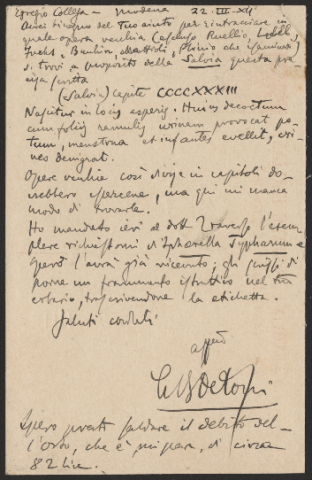 Egregio Collega — Modena 22-III-
Avrei bisogno del Tuo aiuto per rintracciare in
quale opera vecchia (Ruellio, Lobel,
Fuchs, Bauhin, Mattioli, Plinio
si trovi a proposito della Salvia questa pre-
cisa scritta
(Salvia) capite CCCCXXXIII
Nascitur in locis asperis. Huius decoctum
cum foliis ramulis urinam provocat po-
tum, menstrua et infantes evellit, cri-
nes denigrat.
Opere vecchie così divise in capitoli do-
vrebbero essercene, ma qui mi manca
modo di trovarle.
Ho mandato ieri al dott. l'esem-
plare richiestomi di Sphaerella Typharum e
spero l'avrà già ricevuto; gli di
porre un frammento istruttivo nel tuo
erbario, trascrivendone la etichetta.
Saluti cordiali
affmo
GB De Toni
Spero presto saldare il debito del-
l'Orto, che è, mi pare, di circa
82 lire.